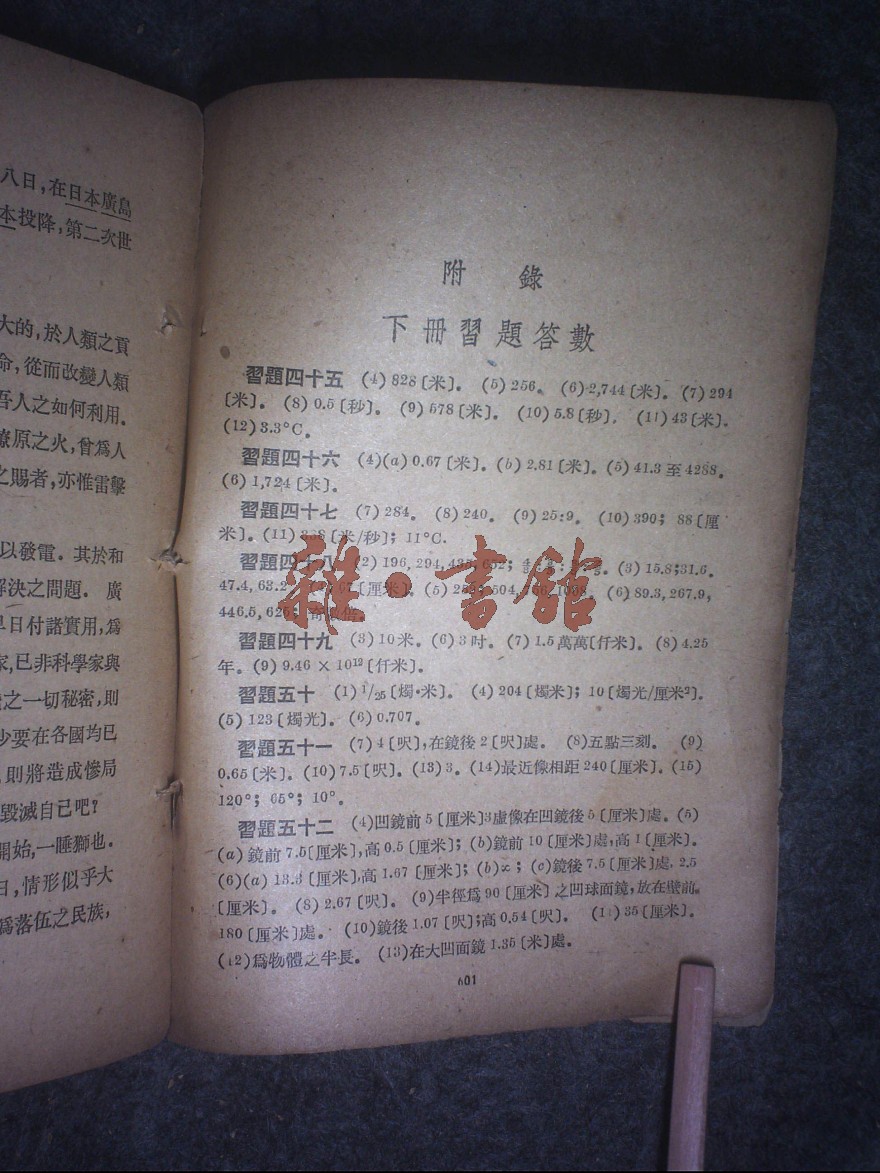 八日,在日本廣島
本投降,第二次世
大的,於人類之貢
命,從而改變人類
吾人之如何利用。
燎原之火,曾爲人
之賜者,亦惟雷擊
以發電。其於和
解決之問題。廣
早日付諸實用,爲
家,已非科學家與
之一切秘密,則
少要在各國均已
則將造成慘局
毀滅自己吧?
開始,一睡獅也。
日,情形似乎大
爲落伍之民族,
附 錄
下冊習題答數
習題四十五 (4)828〔米〕。 (5)256。 (6)2,744〔米〕。 (7)294
〔米〕。 (8)0.5〔秒〕。 (9)578〔米〕。 (10)5.8〔秒〕。 (11)43〔米〕。
(12)3.3°C。
習題四十六 (4)(a)0.67〔米〕。(b)2.81〔米〕。(5)41.3至4288。
(6)1,724〔米〕。
習題四十七 (7)284。 (8)240。 (9)25:9。 (10)390; 88〔厘
米〕。(11)〔米/秒〕; 11°C.
習題四十八 (2)196, 294, (3)15.8;31.6,
47.4, 63.2 〔厘米〕。(5) (6)89.3, 267.9,
446.5, 625;
雜·書館
習題四十九 (3)10米。(6)3吋。(7)1.5萬萬〔仟米〕。(8)4.25
年。(9)9.46 × 10¹²〔仟米〕。
習題五十 (1)1/25〔燭·米〕。 (4)204〔燭米〕; 10〔燭光/厘米²〕。
(5)123〔燭光〕。(6)0.707。
習題五十一 (7)4〔呎〕,在鏡後2〔呎〕處。 (8)五點三刻。 (9)
0.65〔米〕。(10)7.5〔呎〕。(13)3。(14)最近像相距240〔厘米〕。(15)
120°; 65°; 10°。
習題五十二 (4)凹鏡前5〔厘米〕3虛像在凹鏡後5〔厘米〕處。(5)
(a)鏡前7.5〔厘米〕,高0.5〔厘米〕; (b)鏡前10〔厘米〕處,高1〔厘米〕。
(6)(a)13.3〔厘米〕,高1.67〔厘米〕; (b)∞; (c)鏡後7.5〔厘米〕處, 2.5
〔厘米〕。 (8)2.67〔呎〕。 (9)半徑爲90〔厘米〕之凹球面鏡,放在壁前
180〔厘米〕處。 (10)鏡後1.07〔呎〕;高0.54〔呎〕。 (11)35〔厘米〕。
(12)爲物體之半長。 (13)在大凹面鏡1.35〔米〕處。
601